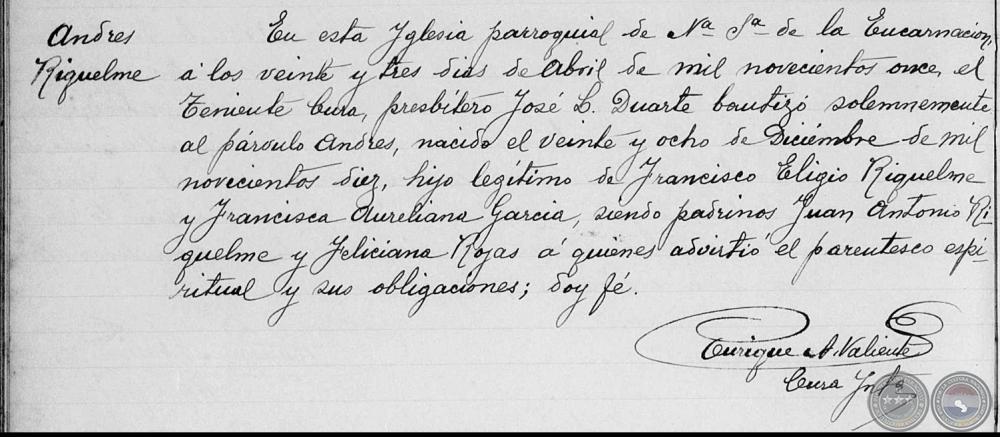 Andres
Riquelme
En esta Yglesia parroquial de Nª Sª de la Encarnacion,
á los veinte y tres dias de Abril de mil novecientos once, el
Teniente Cura, presbítero José L. Duarte bautizó solemnemente
al párvulo Andres, nacido el veinte y ocho de Diciémbre de mil
novecientos diez, hijo legítimo de Francisco Eligio Riquelme
y Francisca Aureliana Garcia, siendo padrinos Juan Antonio Ri-
quelme y Feliciana Rojas á quienes advirtió el parentesco espi-
ritual y sus obligaciones; doy fé.
Enrique A. Valiente
Cura